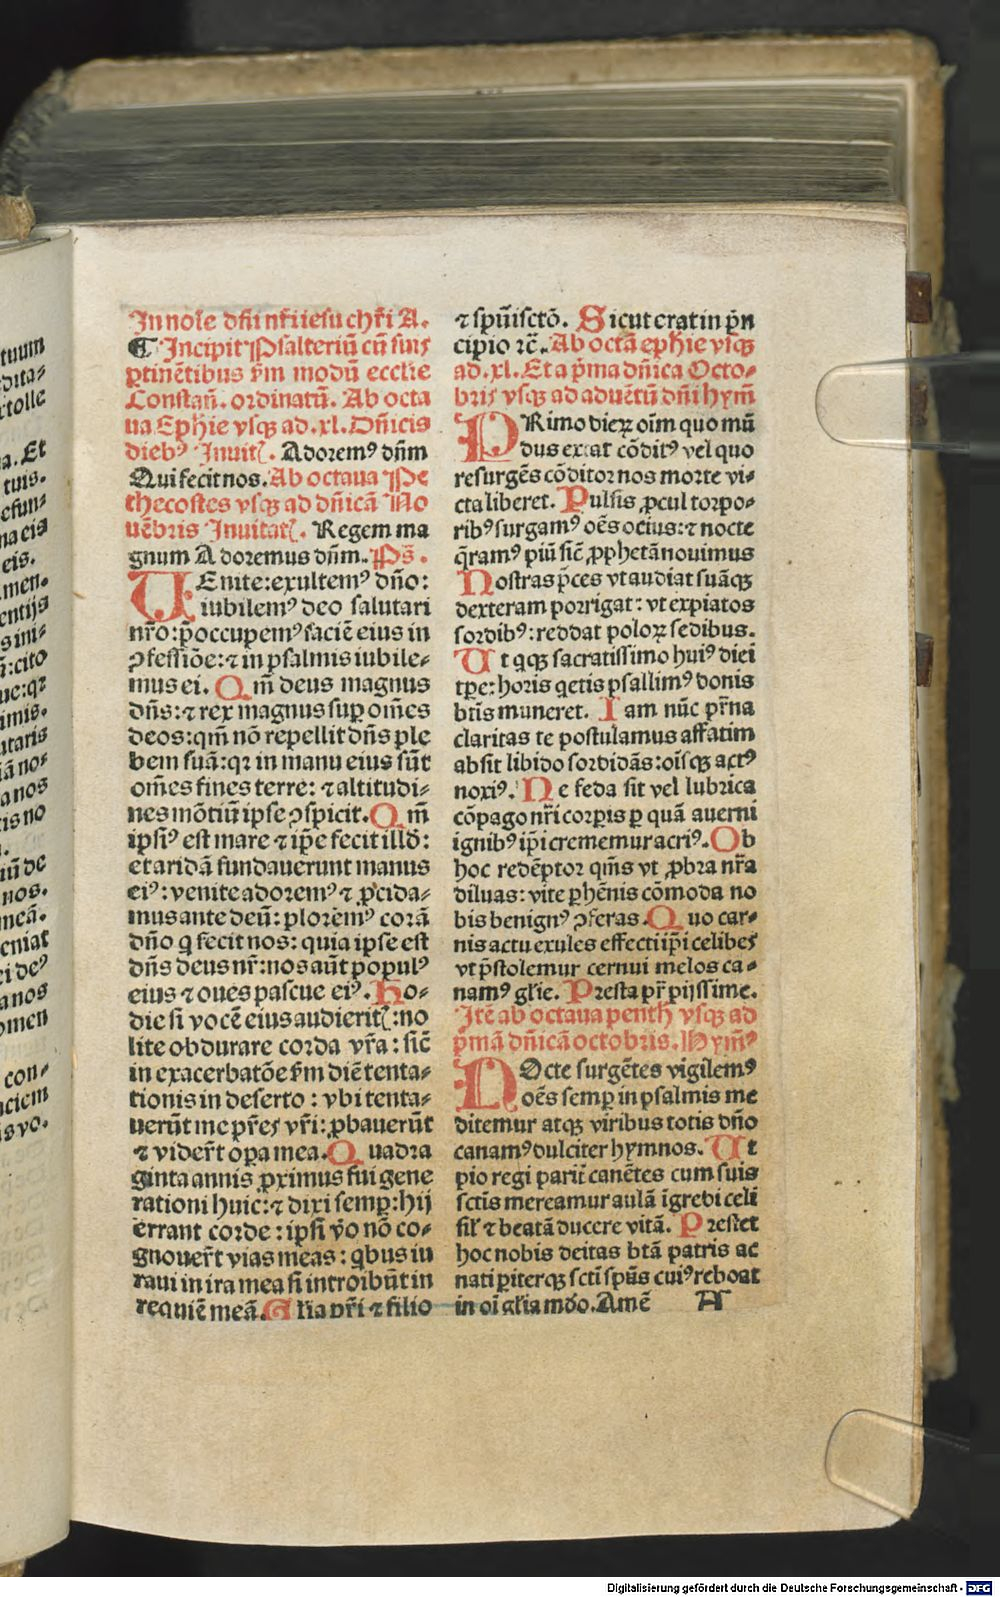 In noīe dn̄i nr̄i iesu chr̄i A.
¶ Incipit Psalteriū cū suis
ꝑtinētibus ẜm modū ecclīe
Constan̄. ordinatū. Ab octa
ua Ephīe vsqꝫ ad .xl. Dn̄icis
diebꝰ Inuitꝭ. Adoremꝰ dn̄m
Qui fecit nos. Ab octaua Pe
thecostes vsqꝫ ad dn̄icā No
uēbris Inuitatꝭ. Regem ma
gnum Adoremus dn̄m. Ps̄.
UEnite: exultemꝰ dn̄o:
iubilemꝰ deo salutari
nr̄o: p̄occupemꝰ faciē eius in
ꝯfessiōe: ⁊ in psalmis iubile⸗
mus ei. Qm̄ deus magnus
dn̄s: ⁊ rex magnus suꝑ om̄es
deos: qm̄ nō repellit dn̄s ple
bem suā: qꝛ in manu eius sūt
om̄es fines terre: ⁊ altitudi⸗
nes mōtiū ipse ꝯspicit. Qm̄
ipsiꝰ est mare ⁊ ip̄e fecit illd̄:
et aridā fundauerunt manus
eiꝰ: venite adoremꝰ ⁊ ꝓcida⸗
mus ante deū: ploremꝰ corā
dn̄o q̇ fecit nos: quia ipse est
dn̄s deus nr̄: nos aūt populꝰ
eius ⁊ oues pascue eiꝰ. Ho⸗
die si vocē eius audieritꝭ: no
lite obdurare corda vr̄a: sic̄
in exacerbatōe ẜm diē tenta⸗
tionis in deserto: vbi tenta⸗
uerūt me pr̄es vr̄i: ꝓbauerūt
⁊ viderūt oꝑa mea. Quadra
ginta annis ꝓximus fui gene
rationi huic: ⁊ dixi semꝑ: hij
errant corde: ipsi v̄o nō co⸗
gnouer̄t vias meas: qbus iu
raui in ira mea si introibūt in
requiē meā. Glīa pr̄i ⁊ filio
⁊ spūi sctō. Sicut erat in pn̄
cipio ⁊c̄. Ab octā ephīe vsqꝫ
ad .xl. Et a p̄ma dn̄ica Octo⸗
bris vsqꝫ ad aduētū dn̄i hym̄
PRimo dieꝝ oīm quo mū
dus extat cōditꝰ vel quo
resurgēs cōditor nos morte vi⸗
cta liberet. Pulsis ꝓcul torpo⸗
ribꝰ surgamꝰ oēs ocius: ⁊ nocte
q̄ramꝰ piū sic̄ ꝓphetā nouimus
Nostras p̄ces vt audiat suāqꝫ
dexteram porrigat: vt expiatos
sordibꝰ: reddat poloꝝ sedibus.
Ut q̇qꝫ sacratissimo huiꝰ diei
tp̄e: horis q̇etis psallimꝰ donis
btīs muneret. Iam nūc pr̄na
claritas te postulamus affatim
absit libido sordidās: oīsqꝫ actꝰ
noxiꝰ. Ne feda sit vel lubrica
cōpago nr̄i corꝑis ꝑ quā auerni
ignibꝰ ip̄i crememur acriꝰ. Ob
hoc redēptor qm̄s vt ꝓbra nr̄a
diluas: vite ꝑhēnis cōmoda no
bis benignꝰ ꝯferas. Quo car⸗
nis actu exules effecti ip̄i celibes
vt p̄stolemur cernui melos ca⸗
namꝰ glīe. Presta pr̄ pijssime.
Itē ab octaua penth̄ vsqꝫ ad
p̄mā dn̄icā octobris. Hymꝰ
NOcte surgētes vigilemꝰ
oēs semꝑ in psalmis me
ditemur atqꝫ viribus totis dn̄o
canamꝰ dulciter hymnos. Ut
pio regi parit̄ canētes cum suis
sctīs mereamur aulā īgredi celi
sil̄ ⁊ beatā ducere vitā. Prestet
hoc nobis deitas btā patris ac
nati ꝑiterqꝫ sctī spūs cuiꝰ reboat
in oī glīa mdo. Amē A
tuum
dita⸗
tolle
a. Et
tuis.
efun⸗
na eis
eis.
men⸗
entijs
s ini⸗
ā: cito
ue: qꝛ
imis.
utaris
iā nos
a nos
tis no
iū de
nos.
meā.
eniat
ei deꝰ
a nos
omen
con⸗
aciem
is vo.
Digitalisierung gefördert durch die Deutsche Forschungsgemeinschaft - DFG